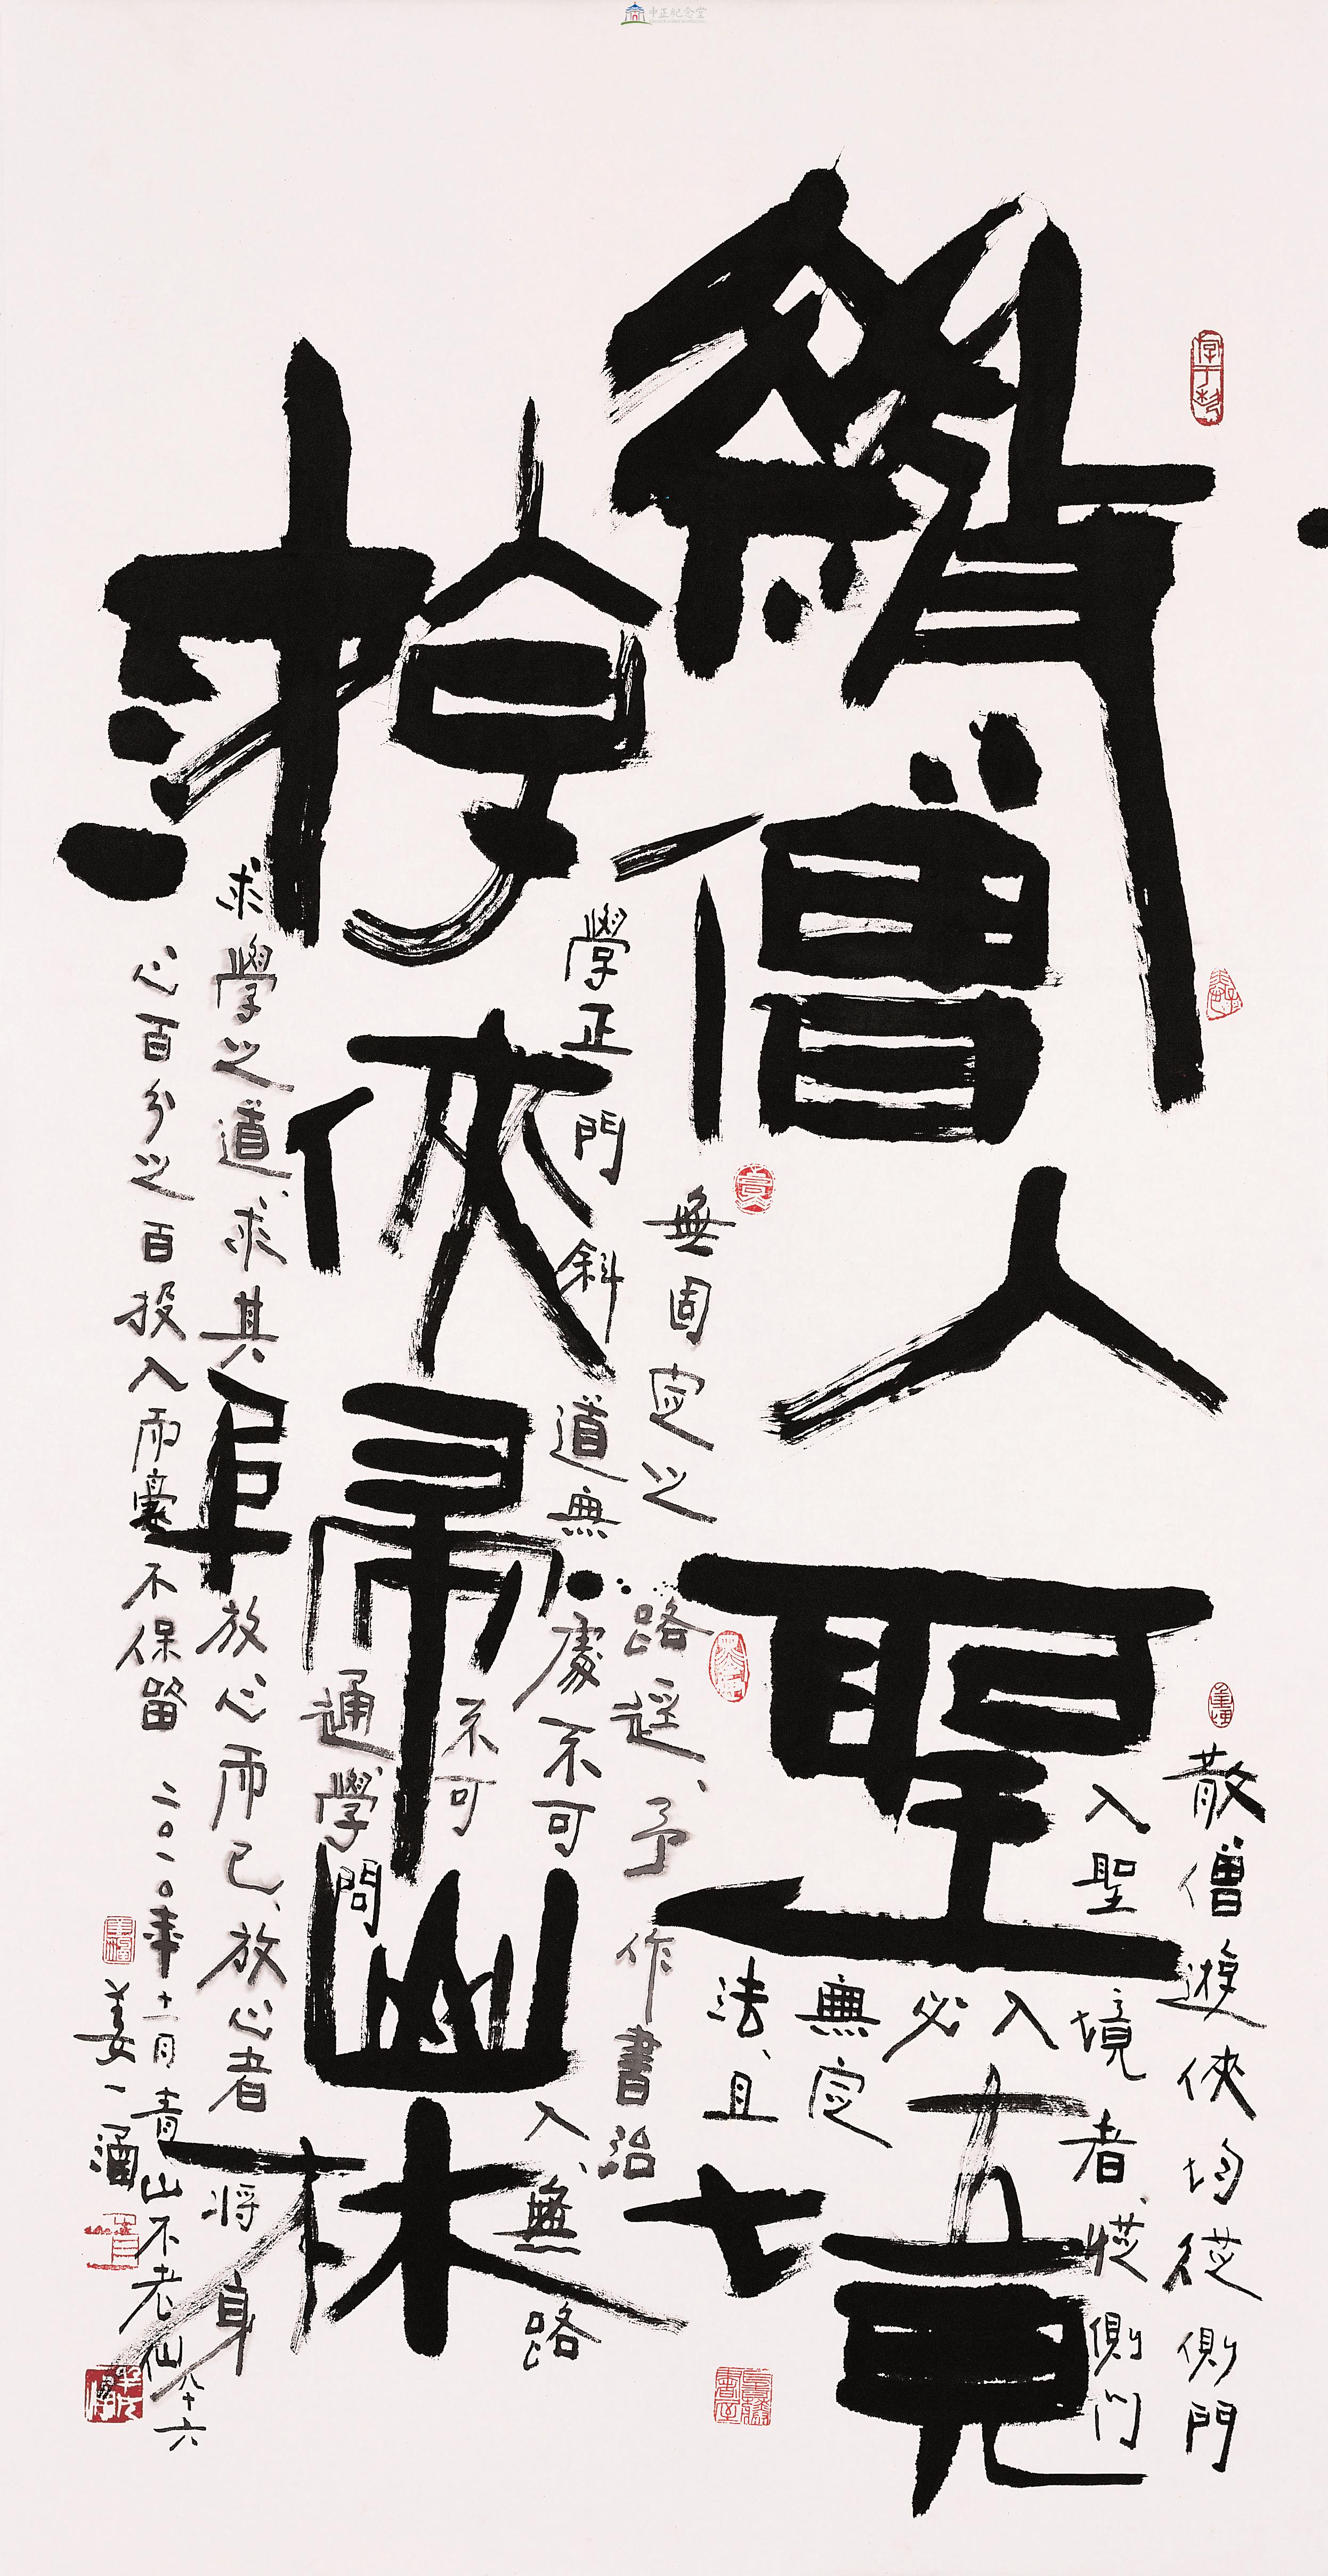 中正紀念堂
散僧入聖境
游俠歸山林
散僧遊俠均從側門
入聖境者、從側門
入必
無定
法、且
無固定之路徑、予作書治
學正門斜道無處不可入、無路
不可
通學問
求學之道、求其放心而已、放心者將身
心百分之百投入而毫不保留 二〇一〇年十二月青山不老仙八十六
姜一涵